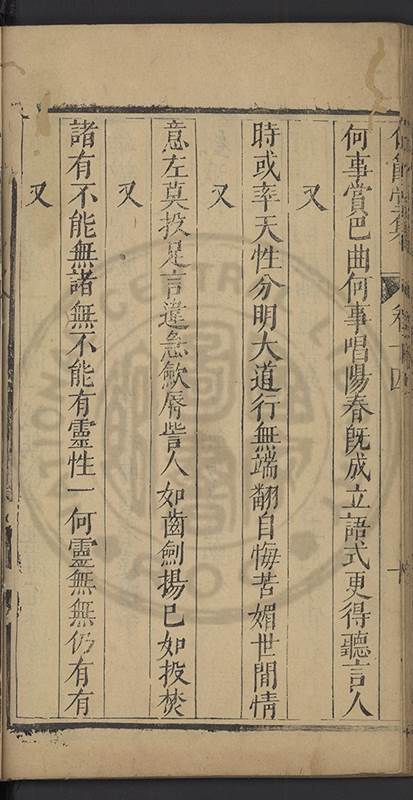 何事賞巴曲何事唱陽春旣成立語式更得聽言人
又
時或率天性分明大道行無端翻自悔苦媚世間情
又
意左莫投足言違急斂脣訾人如齒劍揚己如投焚
又
諸有不能無諸無不能有靈性一何靈無無仍有有
又